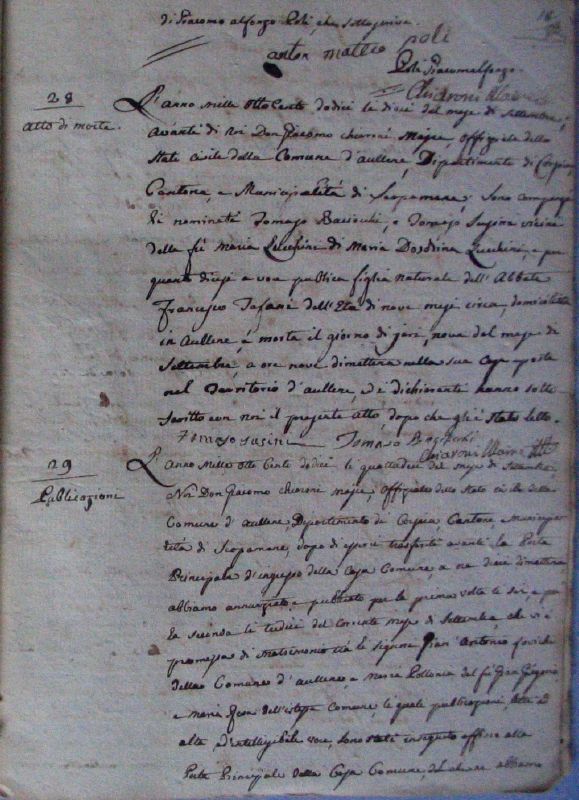 di Giacomo alfonzo Poli, che sottoscrive.
anton matteo poli
Poli Giacomalfonzo.
Chiaroni Maire
28
Atto di morte.
L'anno mille otto Cento dodici le dieci del mese di Settembre,
avanti di Noi Don Giacomo chiaroni Maire, offiziale dello
Stato civile della Comune d'aullene, Dipartimento di Corsica,
Cantone, e Municipalità di Scopamene; Sono comparsi
li nominati Tomaso, e Tomaso Susini vicini
della fù Maria Lucchini di Maria Lucchini, e per
quanto dicesi a voce publica figlia naturale dell'Abbate
Francesco dell'Età di nove mesi circa, domiciliata
in Aullene, è morta il giorno di jeri, nove del mese di
Settembre a ore nove di mattina nella sua Casa posta
nel Territorio d'aullene, e i dichiaranti hanno sotto
scritto con noi il presente atto, dopo che gli è stato letto.
Tomaso susini Tomaso
Chiaroni Maire
29
Publicazione
L'anno mille otto Cento dodici le quattordici del mese di Settembre,
Noi Don Giacomo chiaroni Maire, offiziale dello Stato civile della
Comune d'aullene, Dipartimento di Corsica, Cantone, e Municipa
lità di Scopamene, dopo di essersi trasferiti avanti la Porta
Principale d'ingresso della Casa Comune, a ore dieci di mattina
abbiamo annunziato, e publicato per la prima volta le sei, e per
la seconda le tredici del corrente mese di Settembre, che vi è
promessa di Matrimonio trà li Signori Gian' Antonio
della Comune d'aullene, e Maria del fù Gian
e Maria Rosa dell'istessa Comune, le quali publicazioni fatte ad
alta, ed intelligibile voce, sono state in seguito affisse alla
Porta Principale della Casa Comune, del che ne abbiamo